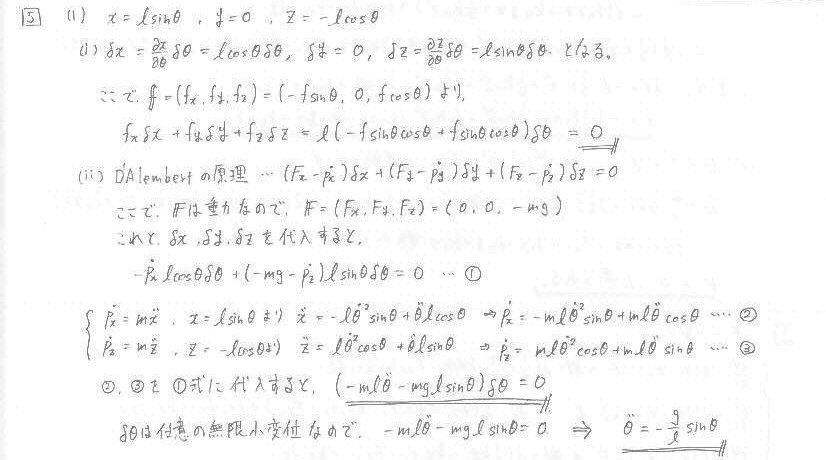 5 (1) x = lsinθ , y = 0 , z = -lcosθ
(i) δx = ∂x/∂θ δθ = lcosθδθ, δy = 0, δz = ∂z/∂θ δθ = lsinθδθ. となる。
ここで、f = (fx, fy, fz) = (-fsinθ, 0, fcosθ) より、
fxδx + fyδy + fzδz = l(-fsinθcosθ + fsinθcosθ)δθ = 0
(ii) D'Alembertの原理 … (Fx - ṗx)δx + (Fy - ṗy)δy + (Fz - ṗz)δz = 0
ここで、Fは重力なので、F = (Fx, Fy, Fz) = (0, 0, -mg)
これと、δx, δy, δzを代入すると、
-ṗx lcosθδθ + (-mg - ṗz)lsinθδθ = 0 … ①
ṗx = mẍ , x = lsinθより ẍ = -lθ̇²sinθ + θ̈lcosθ → ṗx = -mlθ̇²sinθ + mlθ̈cosθ … ②
ṗz = mz̈ , z = -lcosθより z̈ = lθ̇²cosθ + θ̈lsinθ ⇒ ṗz = mlθ̇²cosθ + mlθ̈sinθ … ③
②, ③を①式に代入すると、(-mlθ̈ - mglsinθ)δθ = 0
δθは任意の無限小変位なので、-mlθ̈ - mglsinθ = 0 ⇒ θ̈ = -g/l sinθ